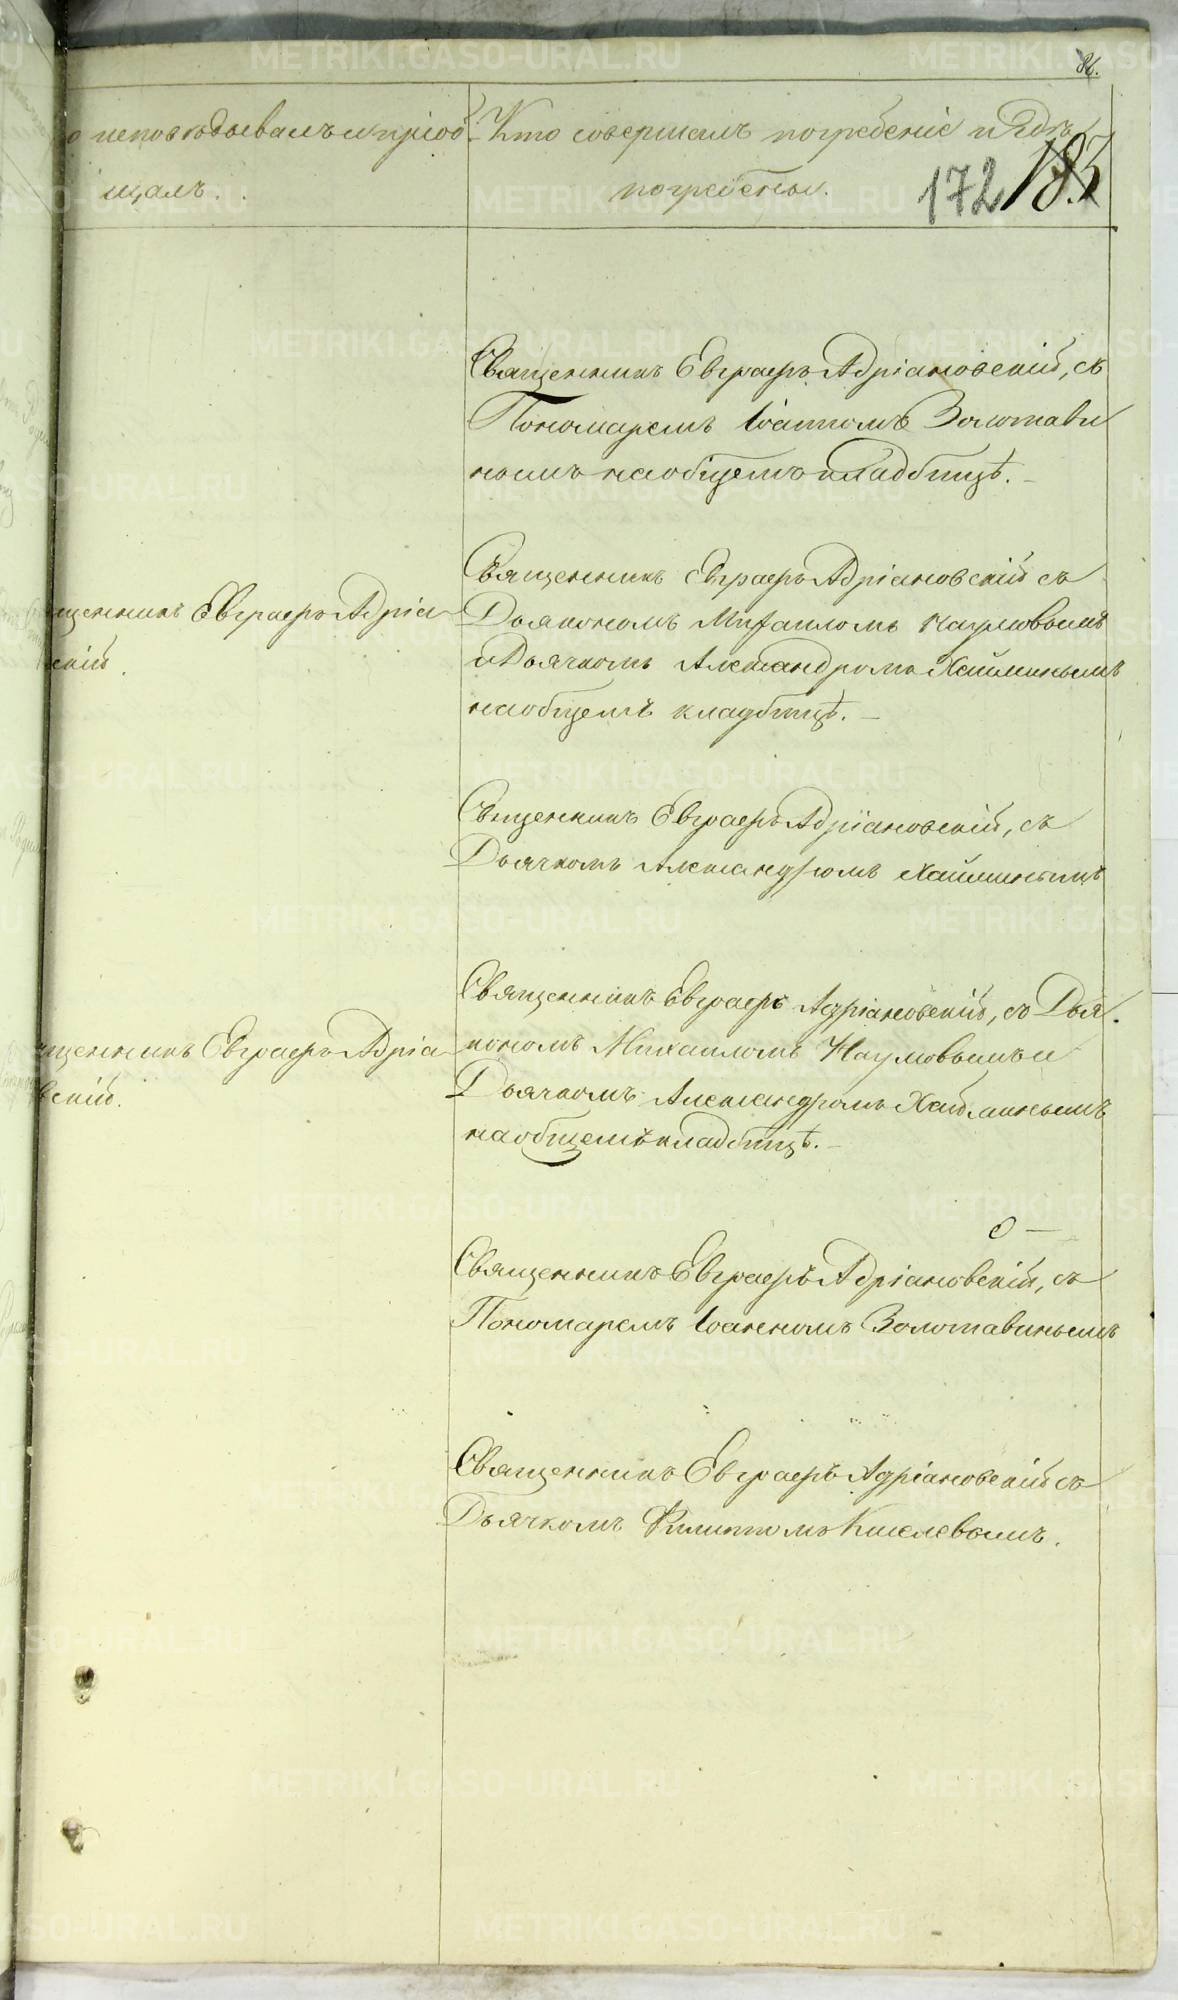 86.
о исповѣдывалъ и пріоб
щалъ.
Кто совершалъ погребеніе и гдѣ
погребены.
172 183
щенникъ Евграфъ Адріа
скій.
щенникъ Евграфъ Адріа
вскій.
Священникъ Евграфъ Адріановскій, съ
Пономаремъ Іоанномъ Золотави
нымъ на общемъ кладбищѣ.
Священникъ Евграфъ Адріановскій съ
Дьякономъ Михаиломъ Наумовымъ
и Дьячкомъ Александромъ Хайминымъ
на общемъ кладбищѣ.
Свщенникъ Евграфъ Адріановскій, съ
Дьячкомъ Александромъ Хайминымъ
Священникъ Евграфъ Адріановскій, съ Дья
кономъ Михаиломъ Наумовымъ и
Дьячкомъ Александромъ Хайминымъ
на общемъ кладбищѣ.
Священникъ Евграфъ Адріановскій, съ
Пономаремъ Іоанномъ Золотавинымъ
Священникъ Евграфъ Адріановскій съ
Дьячкомъ Филиппомъ Киселевымъ.
METRIKI.GASO-URAL.RU